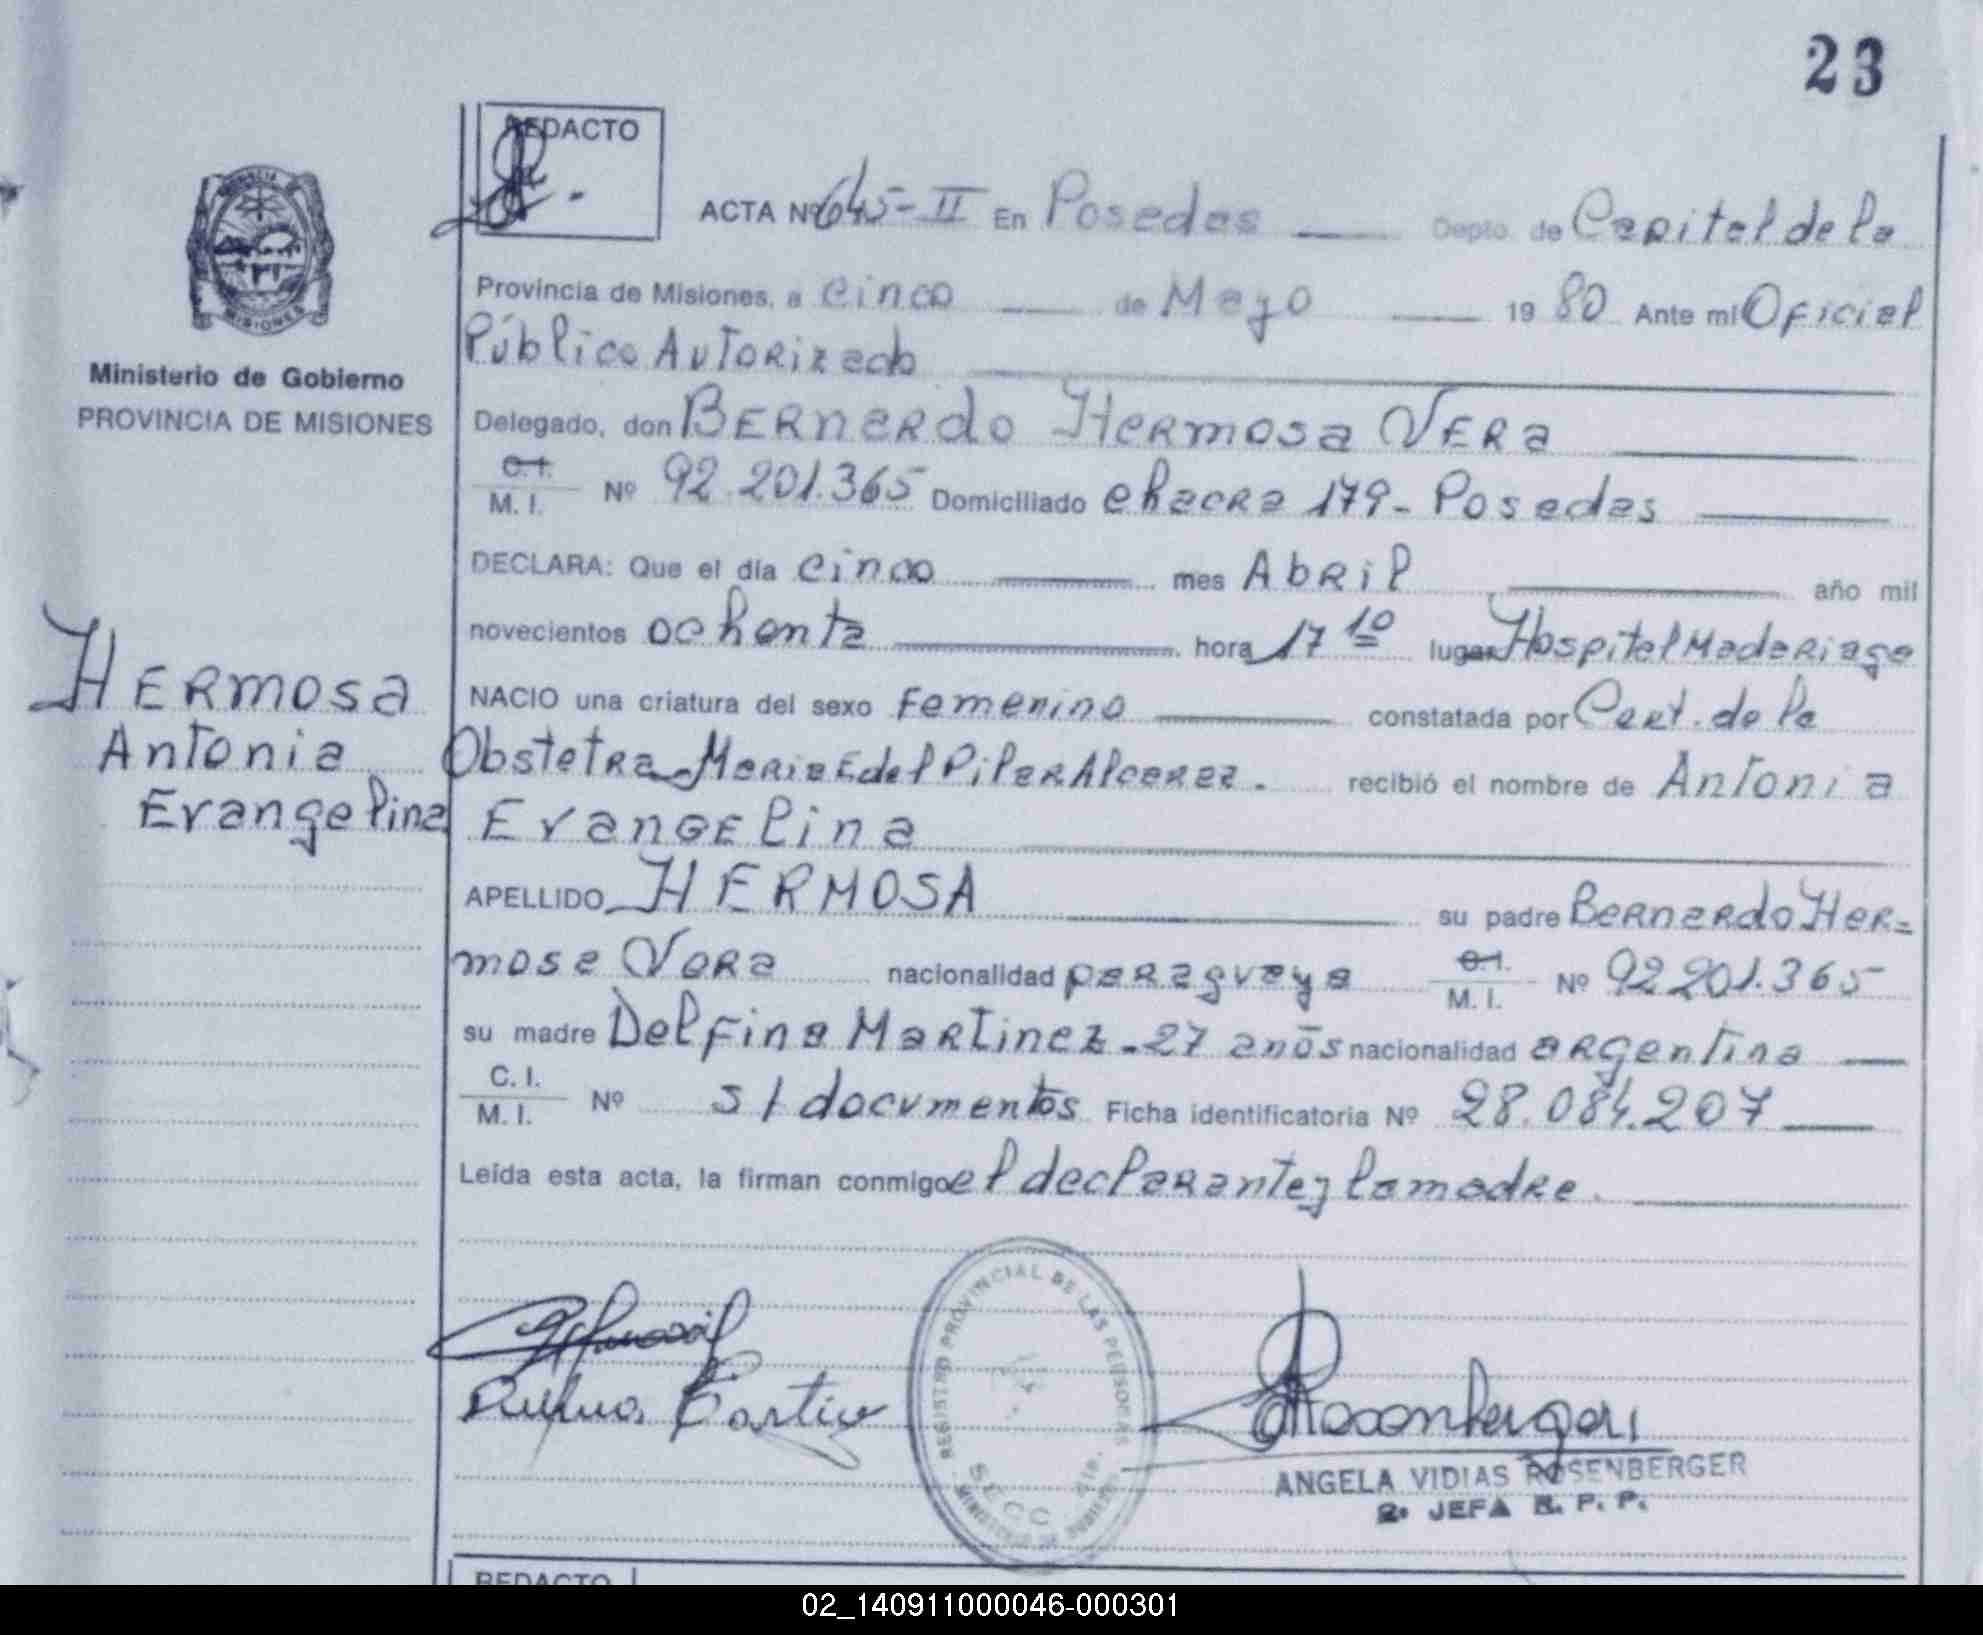 23
REDACTO
ACTA Nº 645-II En Posadas Depto. de Capital de la
Provincia de Misiones, a cinco de Mayo 1980 Ante mi Oficial
Público Autorizado
Ministerio de Gobierno
PROVINCIA DE MISIONES
Delegado, don Bernardo Hermosa Vera
C.I.
M. I. Nº 92.201.365 Domiciliado chacra 179- Posadas
DECLARA: Que el día cinco mes Abril año mil
novecientos ochenta hora 17 10 lugar Hospital Madariaga
HERMOSA
Antonia
Evangelina
NACIO una criatura del sexo Femenino constatada por Cert. de la
Obstetra Maria E del Pilar Alcaraz. recibió el nombre de Antonia
Evangelina
APELLIDO HERMOSA su padre Bernardo Her-
mosa Vera nacionalidad paraguaya C.I. M. I. Nº 92.201.365
su madre Delfina Martinez - 27 años nacionalidad argentina
C. I.
M. I. Nº s/documentos Ficha identificatoria Nº 28.084.207
Leída esta acta, la firman conmigo el declarante y la madre.
REGISTRO PROVINCIAL DE LAS PERSONAS
SECC
ANGELA VIDIAS ROSENBERGER
2º JEFA R. P. P.
REDACTO
02_140911000046-000301